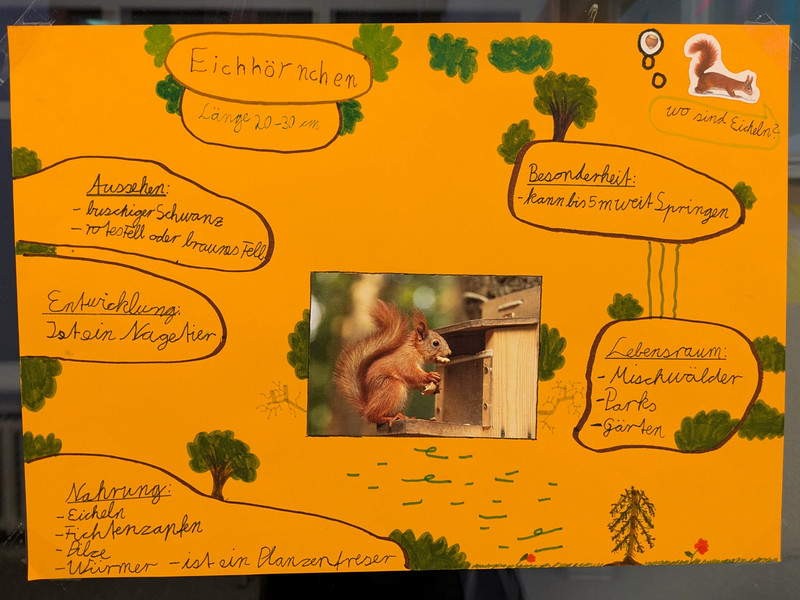 Eichhörnchen
Länge 20-30 cm
wo sind Eicheln?
Aussehen:
- buschiger Schwanz
- rotes Fell oder braunes Fell
Besonderheit:
- kann bis 5 m weit Springen
Entwicklung:
Ist ein Nagetier
Lebensraum:
- Mischwälder
- Parks
- Gärten
Nahrung:
- Eicheln
- Fichtenzapfen
- Pilze
- Würmer - ist ein Planzenfreser